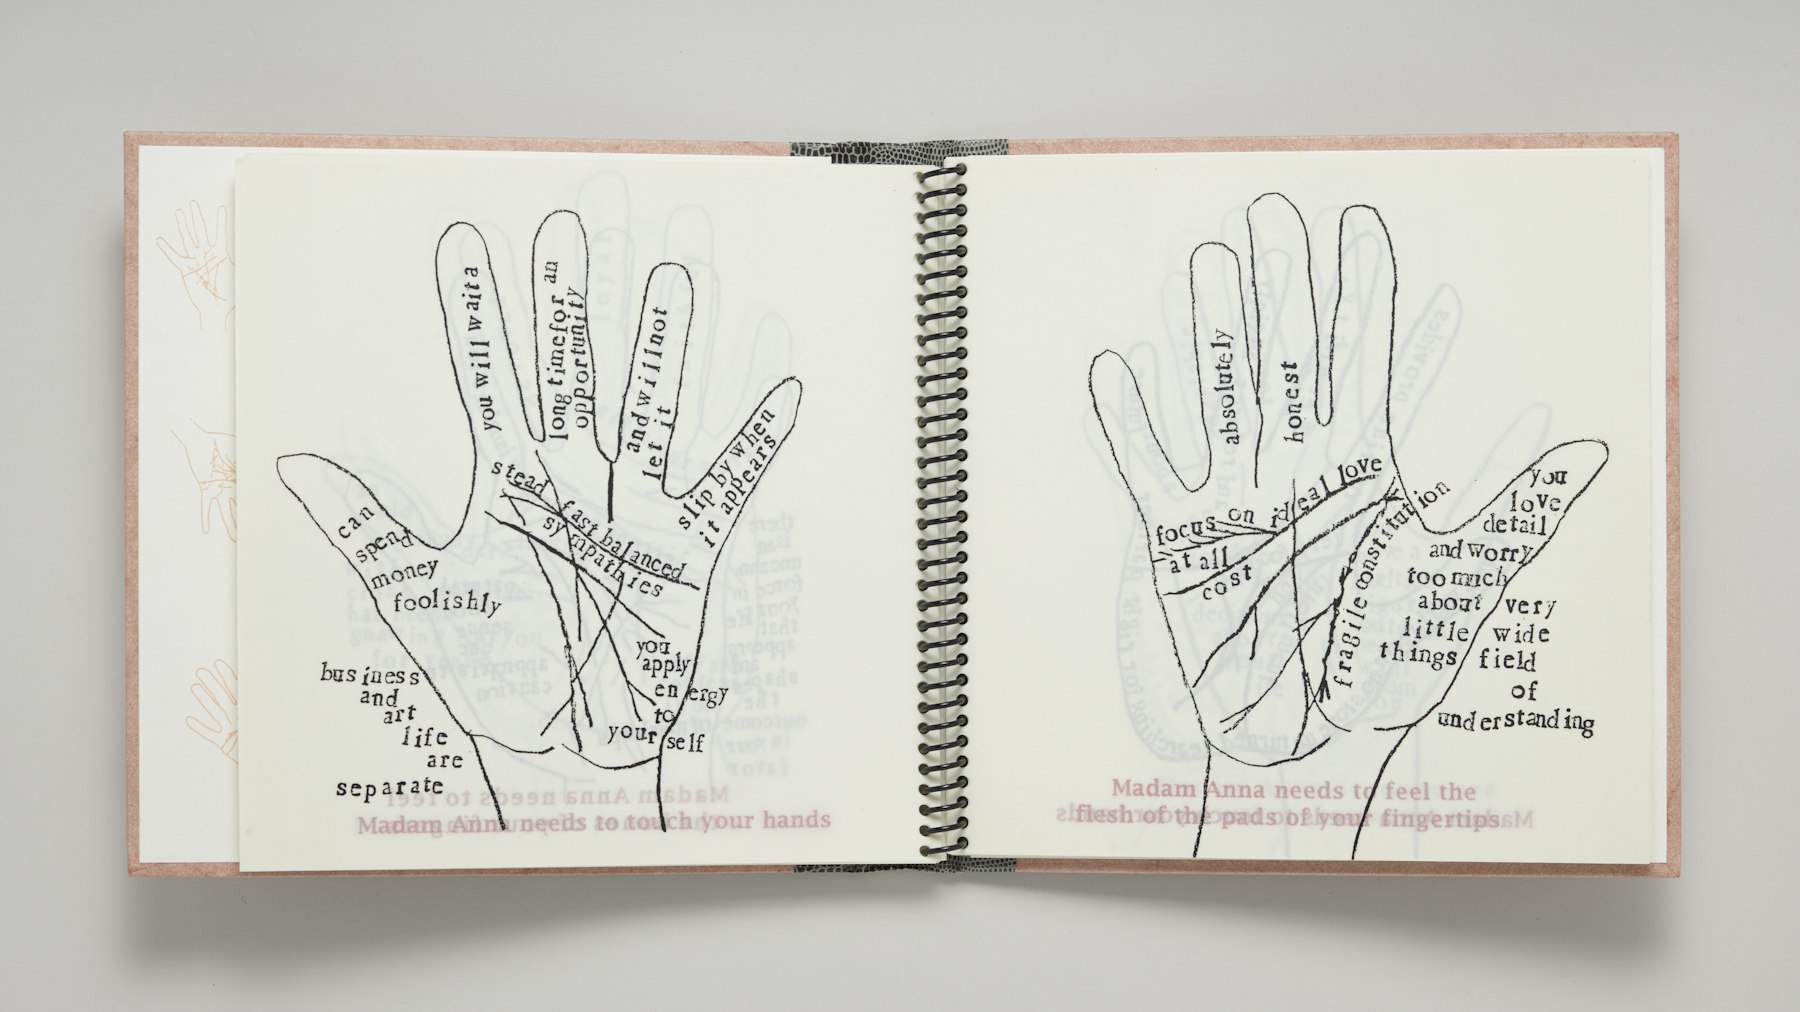 you will wait a
long time for an
opportunity
and will not
let it
slip by when
it appears
can
spend
money
foolishly
stead fast balanced
sympathies
you
apply
energy
to
yourself
business
and
art
life
are
separate
Madam Anna needs to touch your hands
absolutely
honest
focus on ideal love
at all
cost
fragile constitution
you
love
detail
and worry
too much
about
little
things
very
wide
field
of
understanding
Madam Anna needs to feel the
flesh of the pads of your fingertips